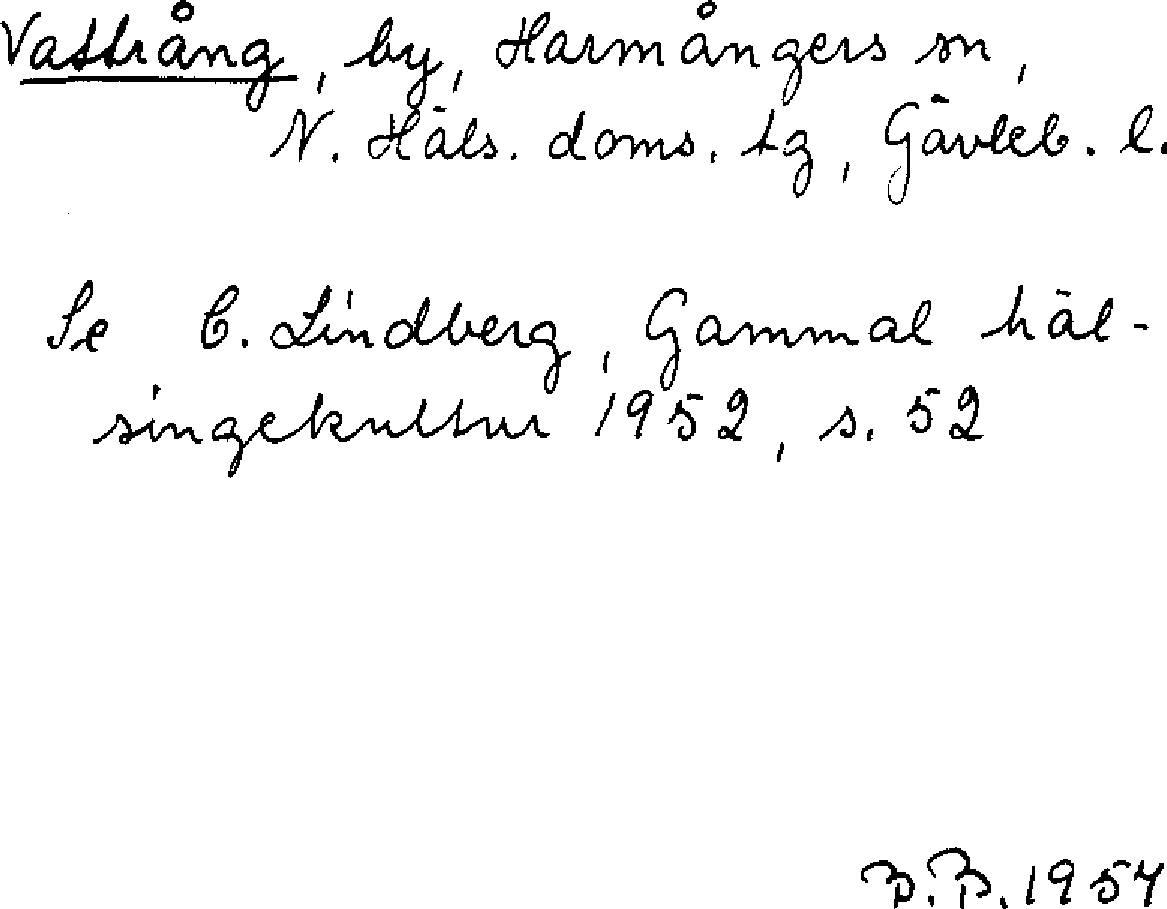 Vattrång, by, Harmångers sn,
N. Häls. doms. tg, Gävleb. l.
Se C. Lindberg, Gammal häl-
singekultur 1952, s. 52
B.B. 1957